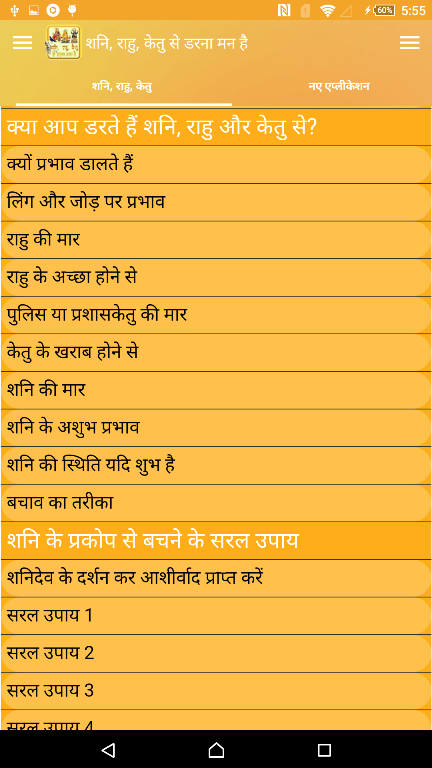 60% 5:55
शनि, राहु, केतु से डरना मन है
शनि, राहु, केतु
नए एप्लीकेशन
क्या आप डरते हैं शनि, राहु और केतु से?
क्यों प्रभाव डालते हैं
लिंग और जोड़ पर प्रभाव
राहु की मार
राहु के अच्छा होने से
पुलिस या प्रशासकेतु की मार
केतु के खराब होने से
शनि की मार
शनि के अशुभ प्रभाव
शनि की स्थिति यदि शुभ है
बचाव का तरीका
शनि के प्रकोप से बचने के सरल उपाय
शनिदेव के दर्शन कर आशीर्वाद प्राप्त करें
सरल उपाय 1
सरल उपाय 2
सरल उपाय 3
सरल उपाय 4